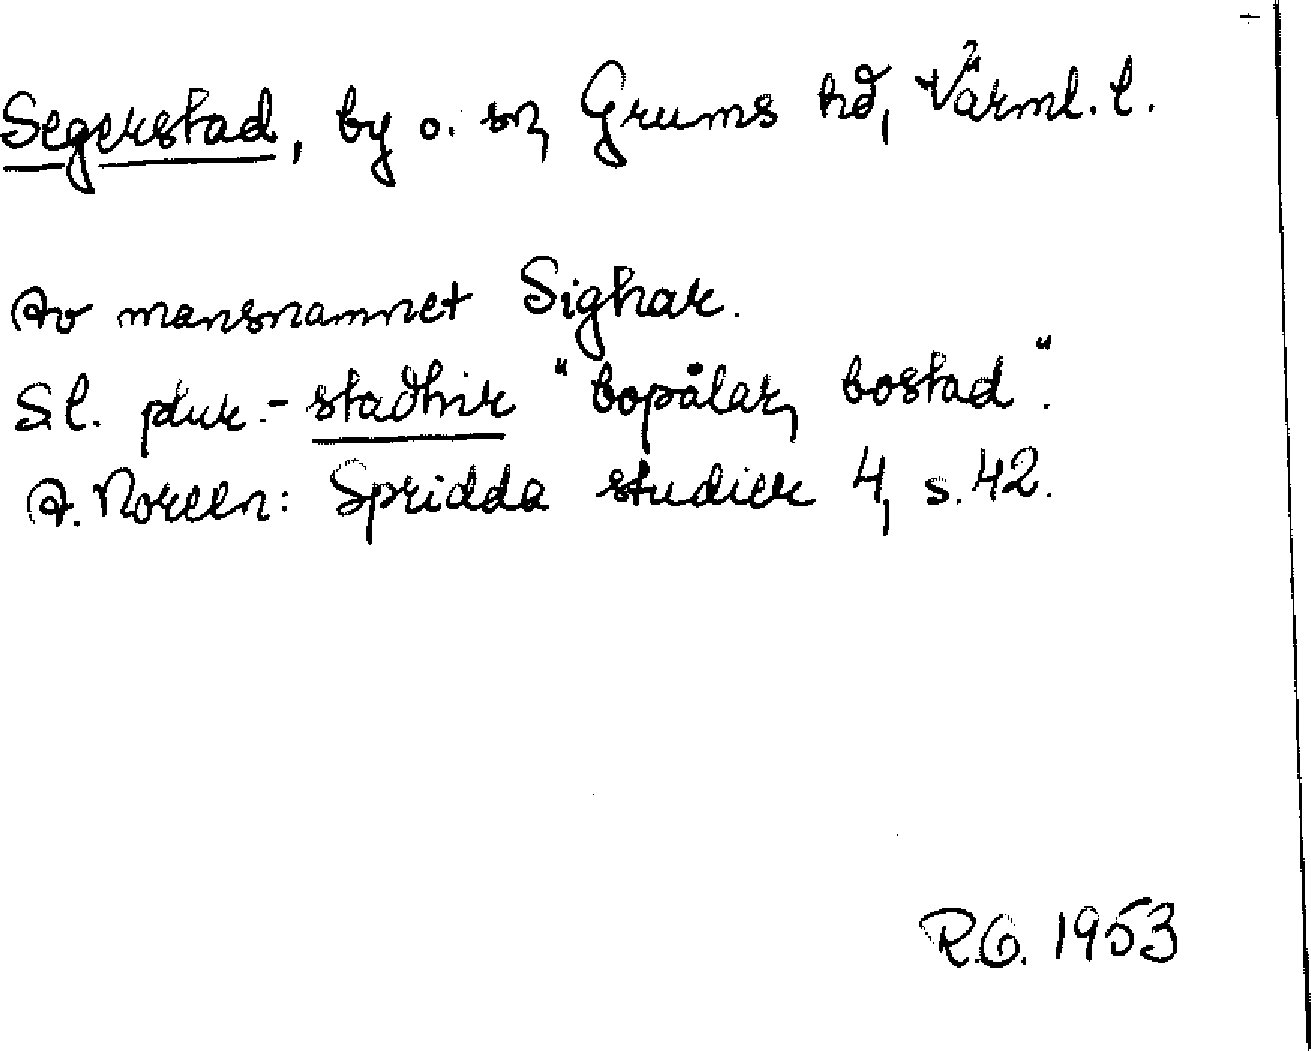 Segerstad, by o. sn, Grums hd, Värml. l.
Av mansnamnet Sighar.
S.l. plur. - stadhir "bopålar, bostad".
A. Noreen: Spridda studier 4, s. 42.
R.G. 1953